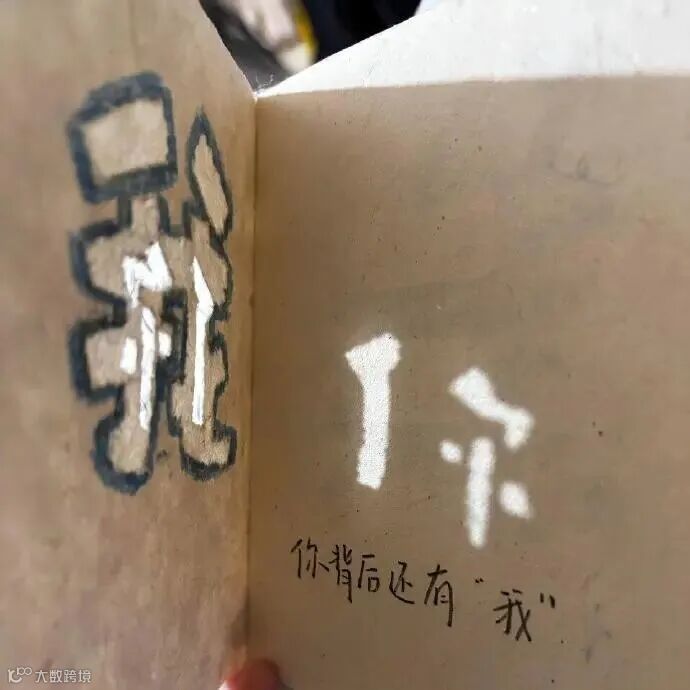 我
你
你背后还有“我”
大数跨境